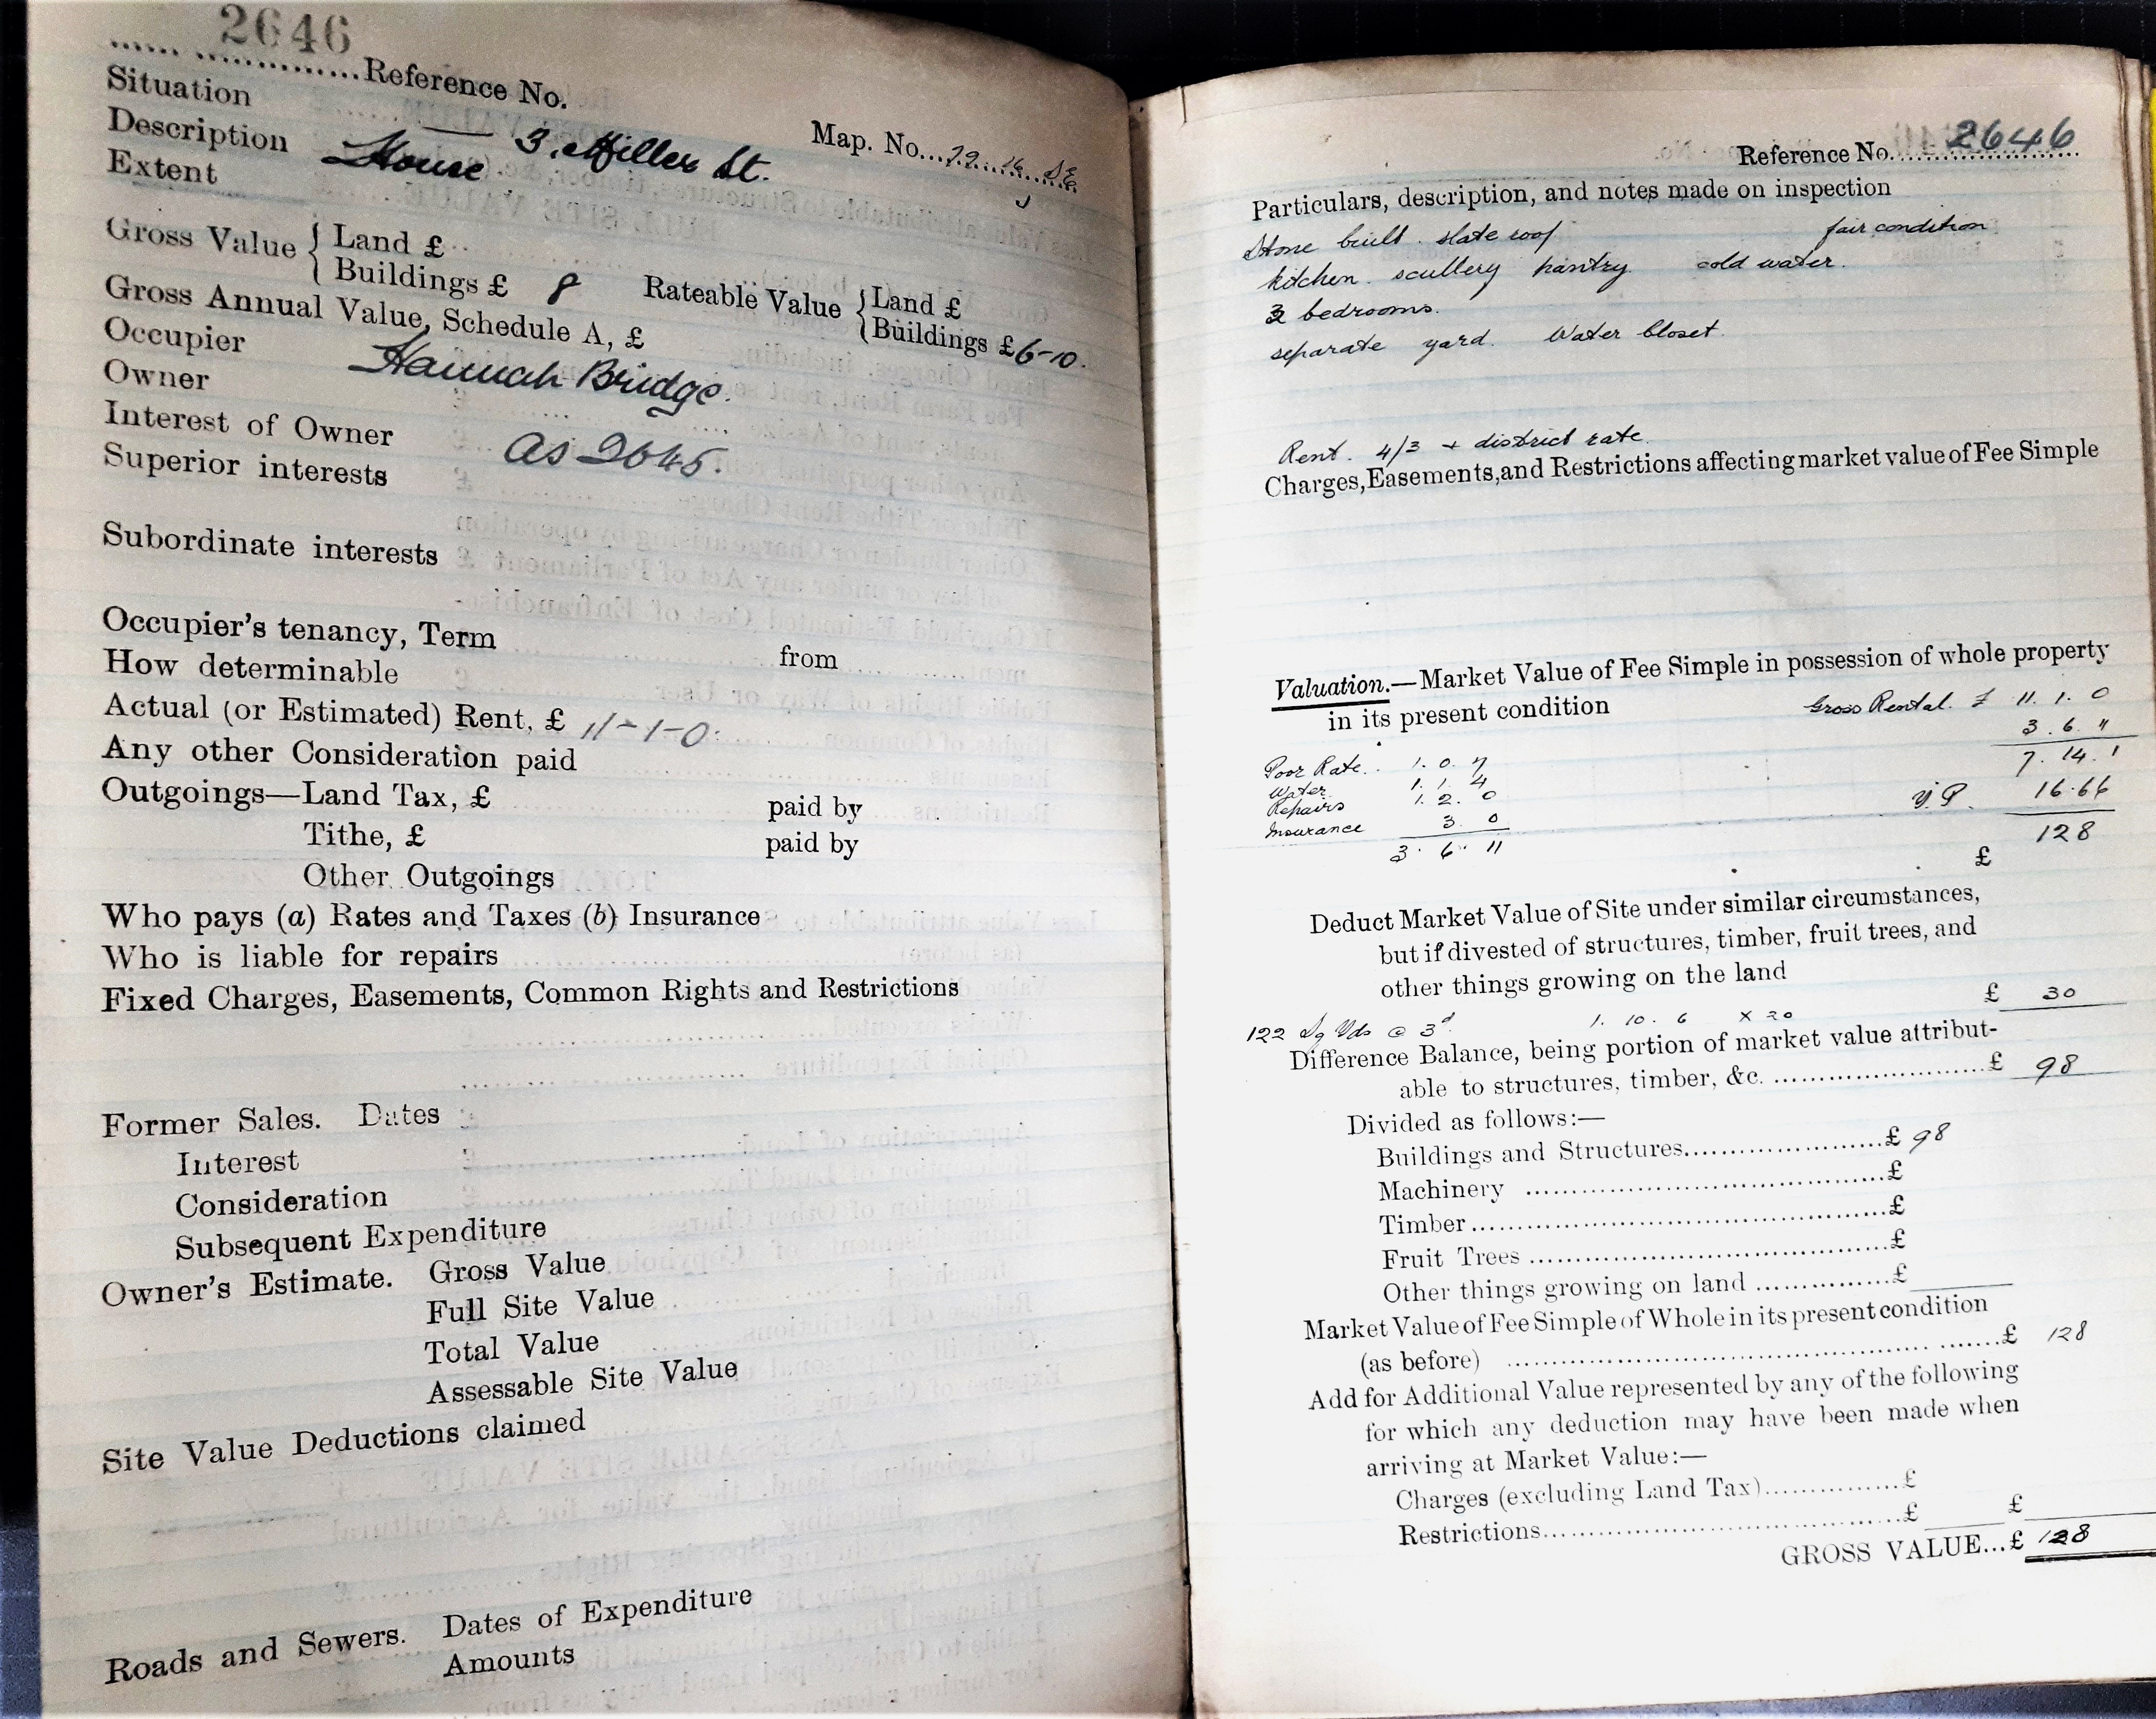 2646
Reference No.
Situation 3. Miller St. Map. No. 79. 16. SE
Description House
Extent
Gross Value { Land £
Buildings £ 8 Rateable Value { Land £
Buildings £ 6-10.
Gross Annual Value, Schedule A, £
Occupier Hannah Bridge.
Owner
Interest of Owner as 2645.
Superior interests
Subordinate interests
Occupier's tenancy, Term from
How determinable
Actual (or Estimated) Rent, £ 11-1-0.
Any other Consideration paid
Outgoings—Land Tax, £ paid by
Tithe, £ paid by
Other Outgoings
Who pays (a) Rates and Taxes (b) Insurance
Who is liable for repairs
Fixed Charges, Easements, Common Rights and Restrictions
Former Sales. Dates
Interest
Consideration
Subsequent Expenditure
Owner's Estimate. Gross Value
Full Site Value
Total Value
Assessable Site Value
Site Value Deductions claimed
Roads and Sewers. Dates of Expenditure
Amounts
Reference No. 2646
Particulars, description, and notes made on inspection
Stone built. slate roof fair condition
kitchen. scullery pantry. cold water.
3 bedrooms.
separate yard. Water Closet.
Rent. 4/3 + district rate.
Charges, Easements, and Restrictions affecting market value of Fee Simple
Valuation.—Market Value of Fee Simple in possession of whole property
in its present condition Gross Rental. £ 11. 1. 0
3. 6. 11
Poor Rate.. 1. 0. 7 7. 14. 1
Water 1. 1. 4
Repairs 1. 2. 0 Y.P. 16.66
Insurance 3. 0
3. 6. 11 128
£
Deduct Market Value of Site under similar circumstances,
but if divested of structures, timber, fruit trees, and
other things growing on the land
£ 30
122 Sq Yds @ 3d. 1. 10. 6 x 20
Difference Balance, being portion of market value attribut-
able to structures, timber, &c. £ 98
Divided as follows:—
Buildings and Structures £ 98
Machinery £
Timber £
Fruit Trees £
Other things growing on land £
Market Value of Fee Simple of Whole in its present condition
(as before) £ 128
Add for Additional Value represented by any of the following
for which any deduction may have been made when
arriving at Market Value:—
Charges (excluding Land Tax) £
Restrictions £ £
GROSS VALUE...£ 128